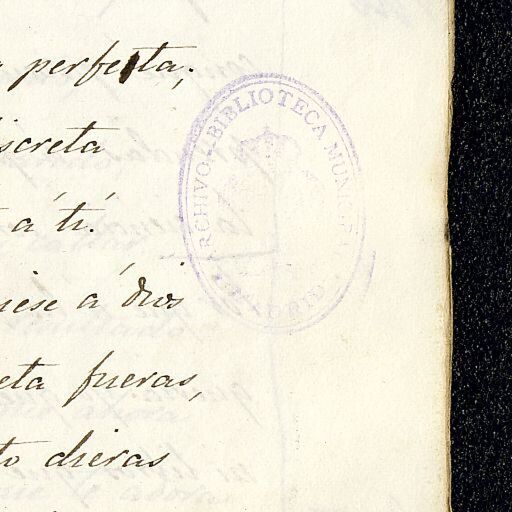 perfecta;
screta
á tí.
iese á dios
eta fueras,
to dieras
ARCHIVO Y BIBLIOTECA MUNICIPAL
MADRID